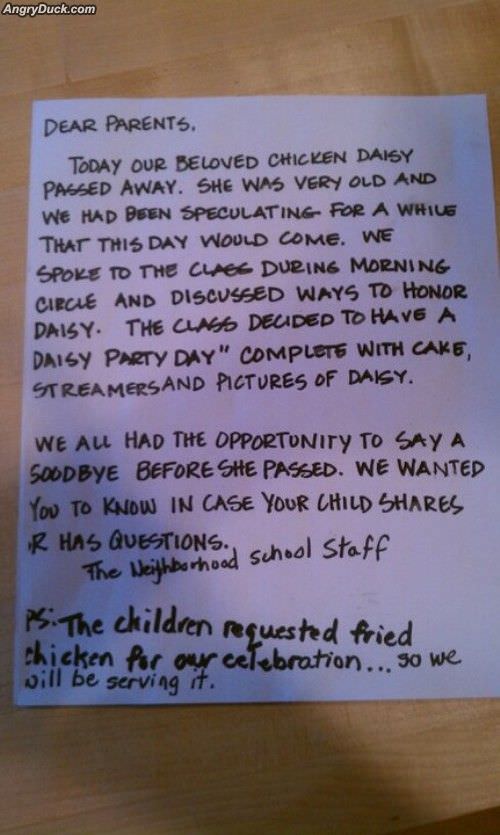 AngryDuck.com
DEAR PARENTS.
TODAY OUR BELOVED CHICKEN DAISY
PASSED AWAY. SHE WAS VERY OLD AND
WE HAD BEEN SPECULATING FOR A WHILE
THAT THIS DAY WOULD COME. WE
SPOKE TO THE CLASS DURING MORNING
CIRCLE AND DISCUSSED WAYS TO HONOR
DAISY. THE CLASS DECIDED TO HAVE A
DAISY PARTY DAY" COMPLETE WITH CAKE,
STREAMERS AND PICTURES OF DAISY.
WE ALL HAD THE OPPORTUNITY TO SAY A
GOODBYE BEFORE SHE PASSED. WE WANTED
YOU TO KNOW IN CASE YOUR CHILD SHARES
R HAS QUESTIONS.
The Neighborhood School Staff
PS: The children requested fried
chicken for our celebration... so we
will be serving it.